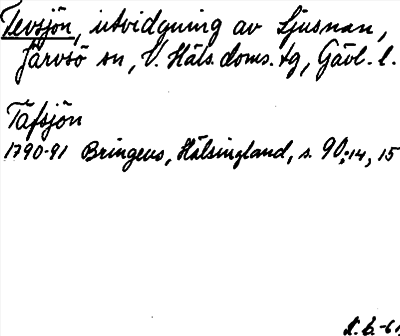 Tevsjön, utvidgning av Ljusnan,
Järvsö sn, V. Häls. doms. tg, Gävl. l.
Tafsjön
1790-91 Bringéus, Hälsingland, s. 90; 14, 15